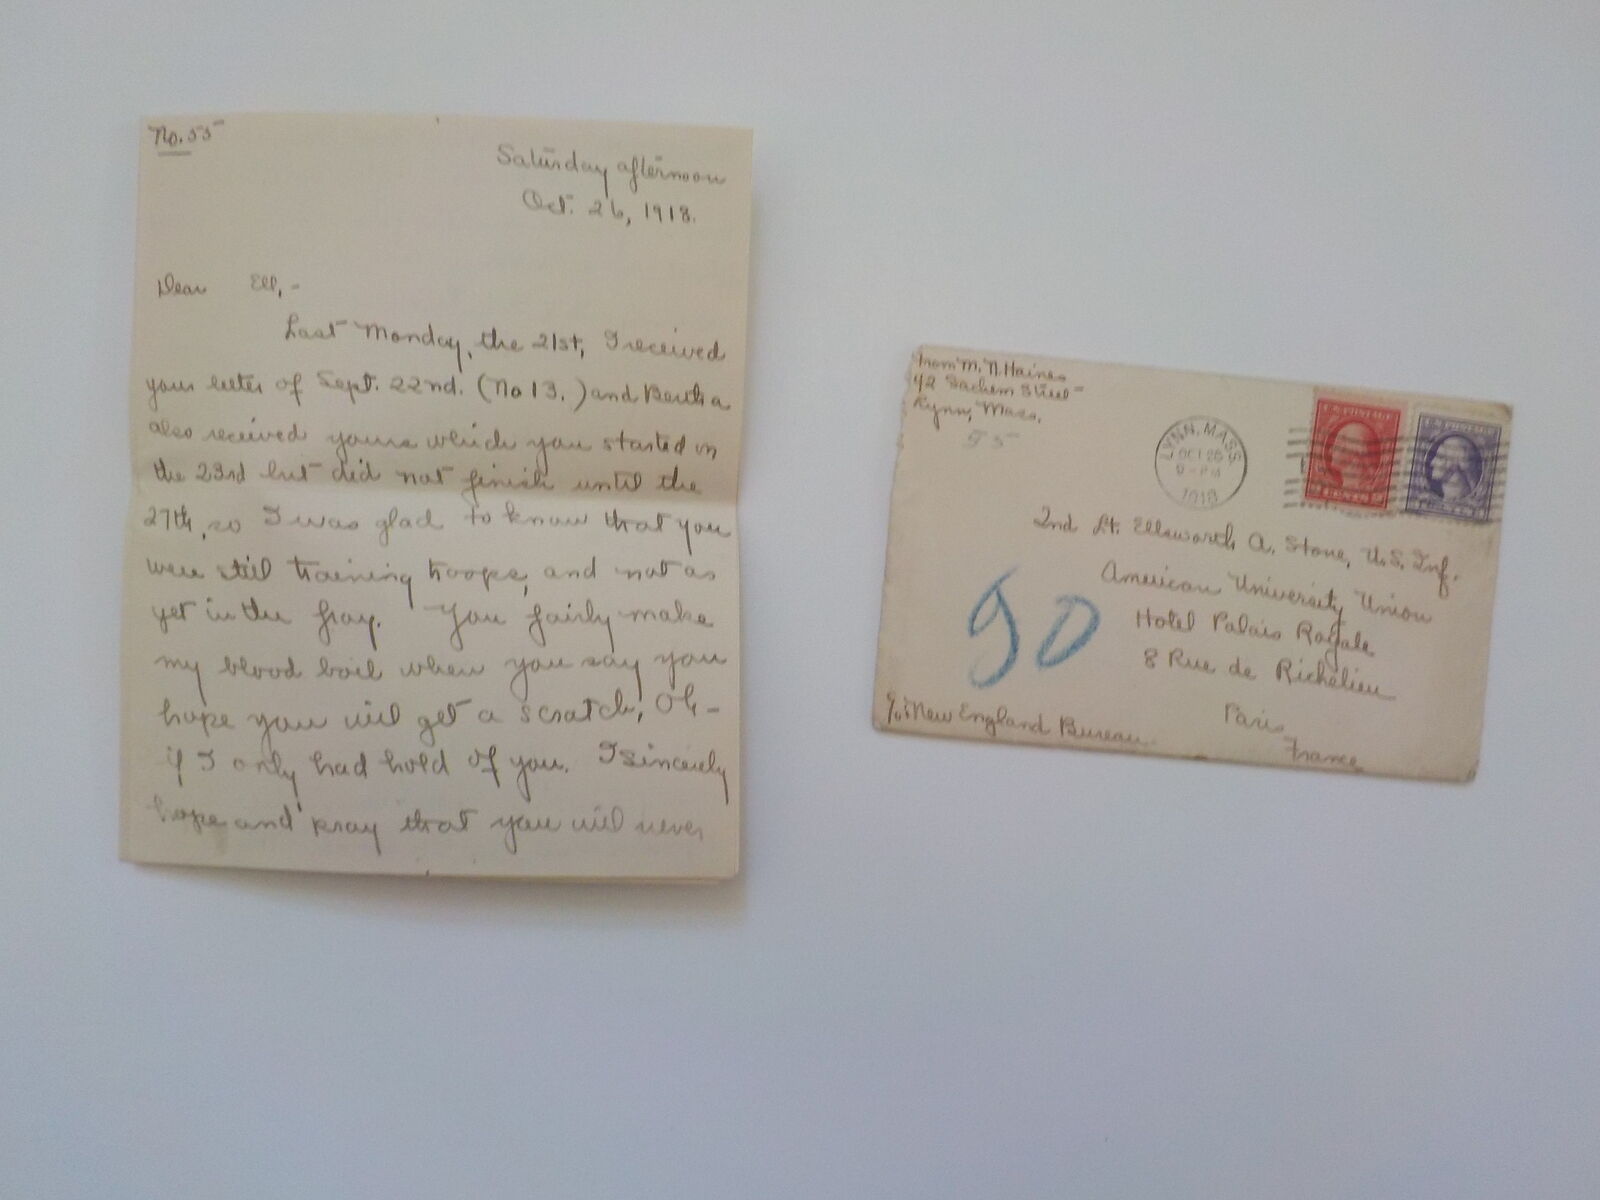 No. 55
Saturday afternoon
Oct. 26, 1918.
Dear Ell,-
Last Monday, the 21st, I received
your letter of Sept. 22nd. (No 13.) and Bertha
also received yours which you started on
the 23rd but did not finish until the
27th, so I was glad to know that you
were still training troops, and not as
yet in the fray. You fairly make
my blood boil when you say you
hope you will get a scratch, Oh-
if I only had hold of you. I sincerely
hope and pray that you will never
From M. N. Haines
42 Sachem Street
Lynn, Mass.
55
LYNN, MASS.
OCT 26
9-PM
1918
U.S. POSTAGE
2 CENTS 2
U.S. POSTAGE
CENTS
2nd Lt. Ellsworth A. Stone, U.S. Inf.
American University Union
Hotel Palais Royale
8 Rue de Richelieu
Paris
France
c/o New England Bureau